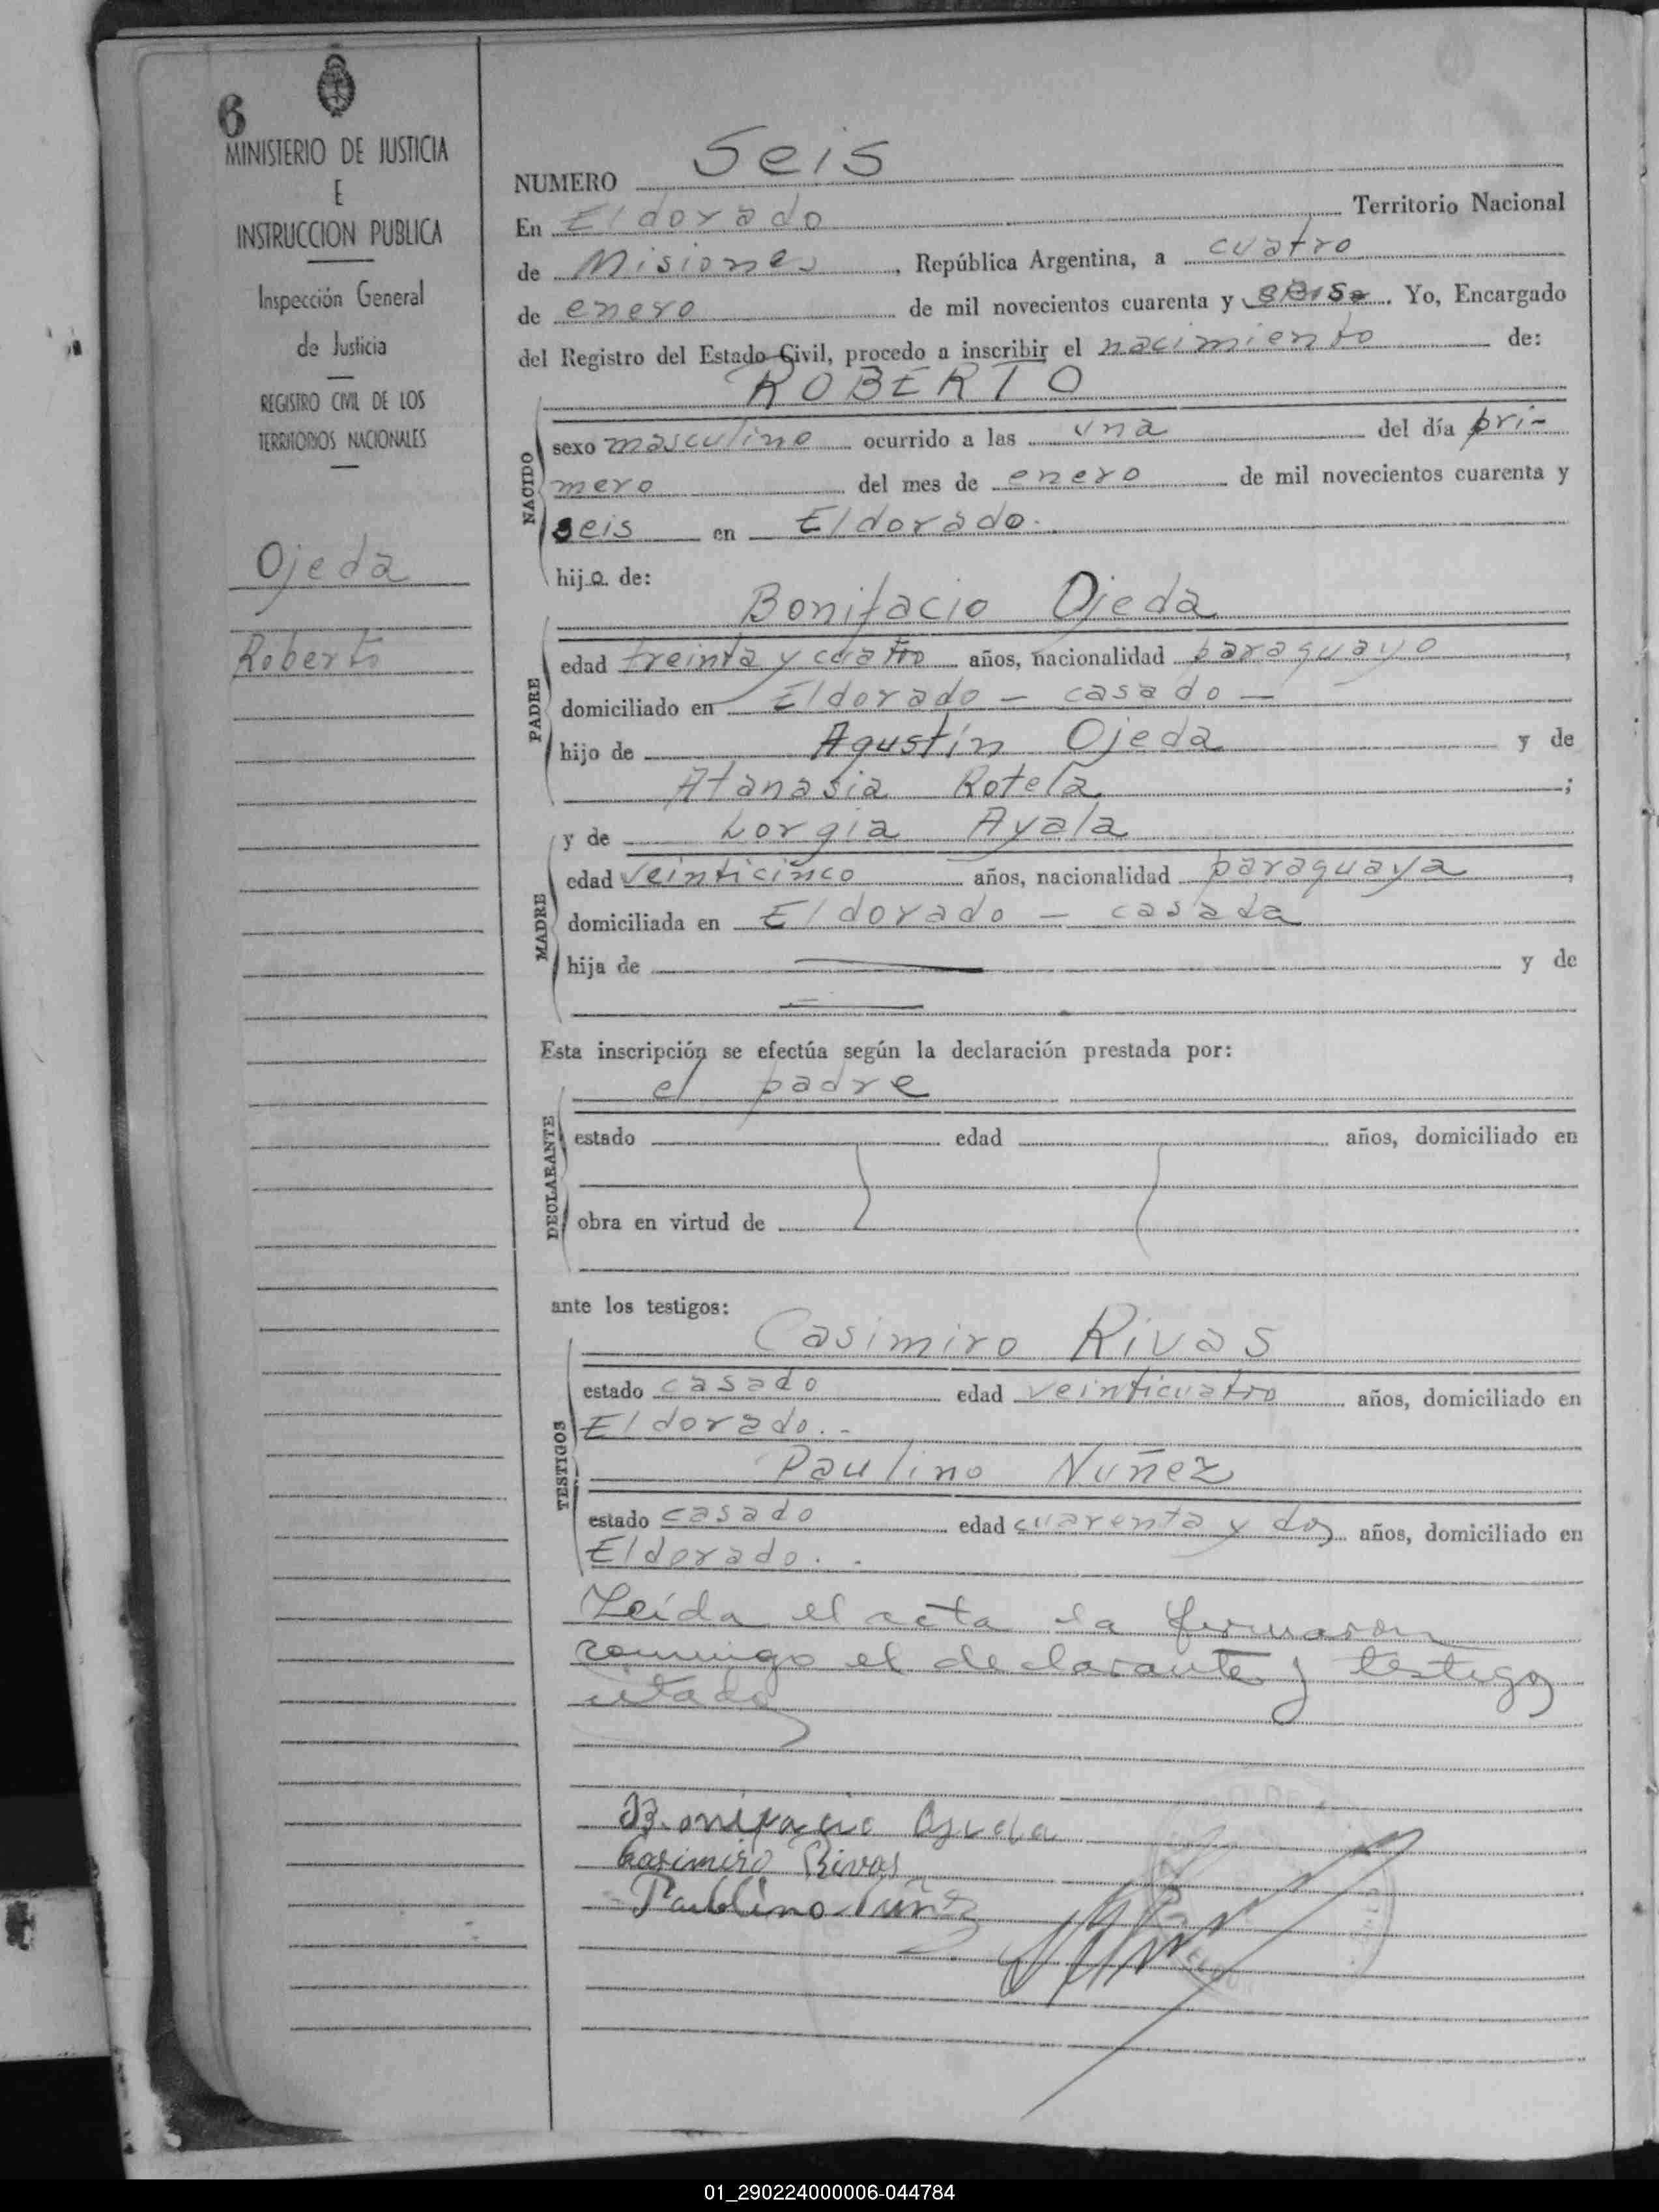 6
MINISTERIO DE JUSTICIA
E
INSTRUCCION PUBLICA
Inspección General
de Justicia
REGISTRO CIVIL DE LOS
TERRITORIOS NACIONALES
Ojeda
Roberto
NUMERO Seis
En Eldorado Territorio Nacional
de Misiones, República Argentina, a cuatro
de enero de mil novecientos cuarenta y seis. Yo, Encargado
del Registro del Estado Civil, procedo a inscribir el nacimiento de:
ROBERTO
NACIDO
sexo masculino ocurrido a las una del día pri-
mero del mes de enero de mil novecientos cuarenta y
seis en Eldorado.
hijo de:
Bonifacio Ojeda
PADRE
edad treinta y cuatro años, nacionalidad paraguayo,
domiciliado en Eldorado - casado -
hijo de Agustín Ojeda y de
Atanasia Rotela;
y de Lorgia Ayala
MADRE
edad veinticinco años, nacionalidad paraguaya,
domiciliada en Eldorado - casada
hija de y de
Esta inscripción se efectúa según la declaración prestada por:
el padre
DECLARANTE
estado edad años, domiciliado en
obra en virtud de
ante los testigos:
Casimiro Rivas
TESTIGOS
estado casado edad veinticuatro años, domiciliado en
Eldorado.-
Paulino Nuñez
estado casado edad cuarenta y dos años, domiciliado en
Eldorado. -
Leída el acta la firmaron
conmigo el declarante y testigos
citados
Bonifacio Ojeda
Casimiro Rivas
Paublino Núñez
01_290224000006-044784